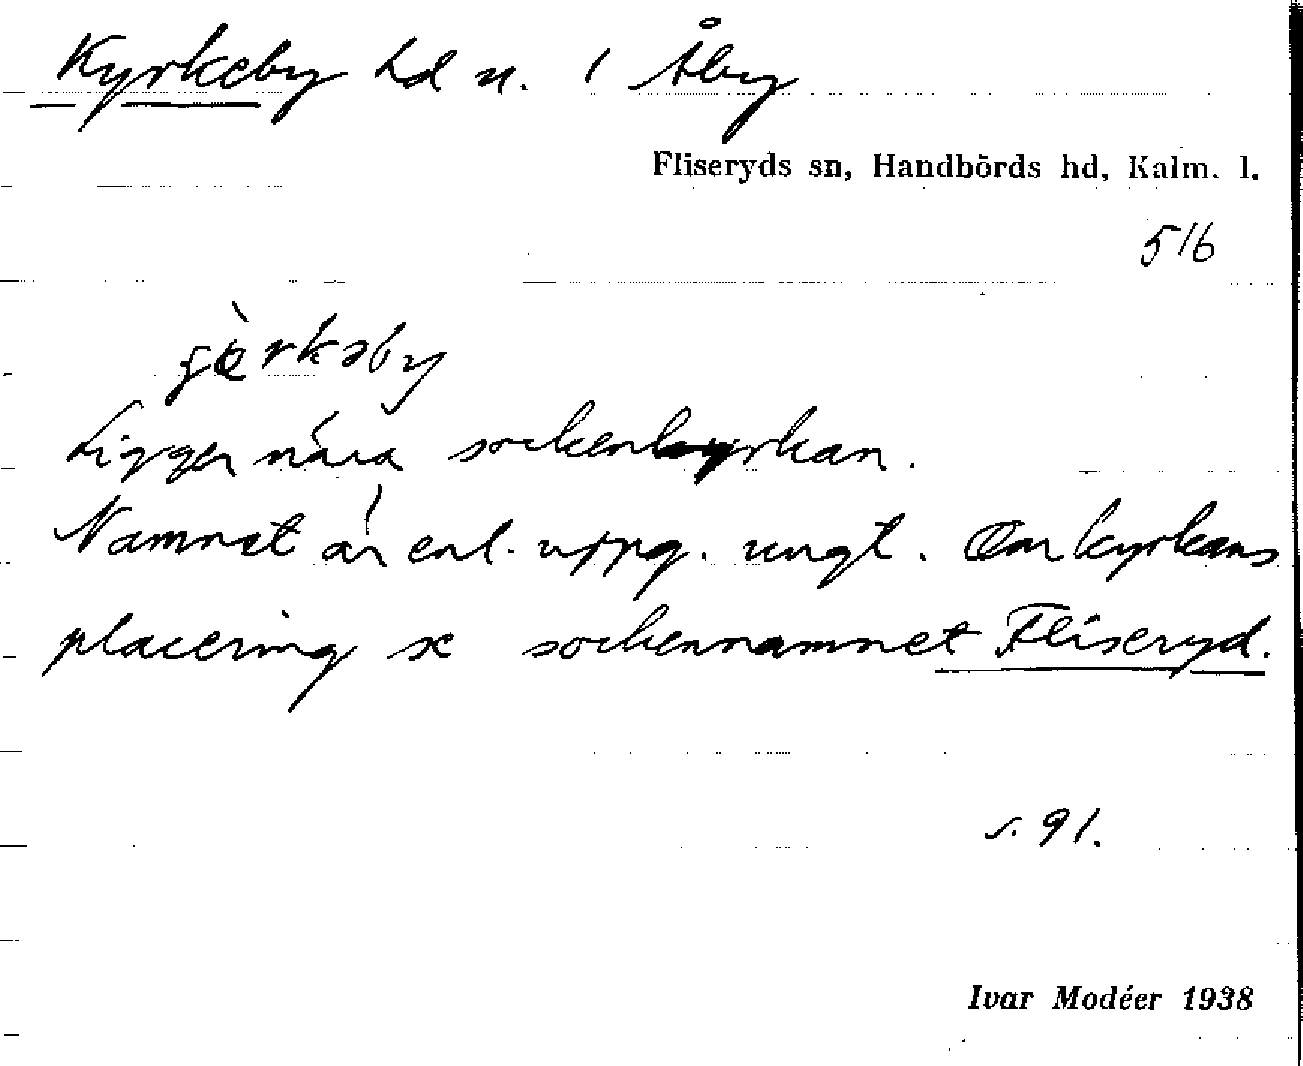 Kyrkeby hd u. 1 Åby
Fliseryds sn, Handbörds hd, Kalm. l.
516
Ligger nära sockenkyrkan.
Namnet är enl. uppg. ungt. Om kyrkans
placering se sockennamnet Fliseryd.
s. 91.
Ivar Modéer 1938